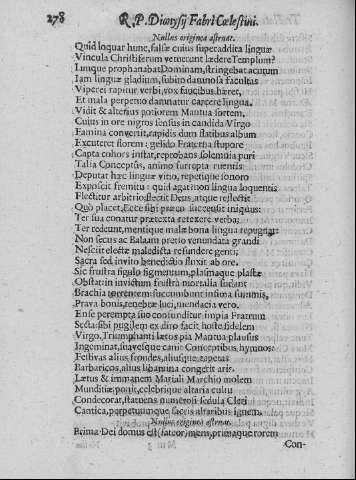 278 R. P. Dionysij Fabri Cœlestini.
Nullus origina astruat.
Quid loquar hunc, falsæ cuius superaddita linguæ
Vincula Christiferum vetuerunt lædere Templum?
Iamque prophanabat Dominam, stringebat acutum
Iam linguæ gladium, subito damnosa facultas
Viperei rapitur verbi, vox faucibus hæret,
Et mala perpetuo damnatur carcere lingua.
Vidit & alterius potiorem Mantua sortem,
Cuius in ore nigros sensus in candida Virgo
Famina convertit, rapidis dum flatibus album
Excuteret florem: gelido Fraterna stupore
Capta cohors instat, reprobans solemnia puri
Talia Conceptus, animo surrepta
Deputat hæc linguæ vitio, repetique sonoro
Exposcit fremitu: quid agat non lingua loquentis
Flectitur arbitrio, flectit Deus, atque reflectit
Quò placet, Ecce sibi præco successit iniquus:
Ter sua conatur prætexta retexere verba,
Ter redeunt, mentique malæ bona lingua repugnat:
Non secus ac Balaam pretio venundata grandi
Nesciit electæ maledicta refundere genti,
Sacra sed invito benedictio fluxit ab ore.
Sic frustra figulo figmentum, plasmaque plastæ
Obstat: in invictum frustrà mortalia sudant
Brachia, succumbunt infima summis,
Prava bonis, tenebræ luci, mendacia vero.
Ense perempta suo confunditur impia Fratrum
Secta: sibi pugilem ex diro facit hoste fidelem
Virgo, Triumphanti lætos pia Mantua plausus
Ingeminat, suavesque canit Conceptibus, hymnos:
Festivas alius frondes, aliusque tapetas
Barbaricos, alius libamina congerit aris.
Lætus & immanem Martiali Marchio molem
Munditiæ ponit, celebrique altaria cultu
Condecorat, statuens numerosi sedula Cleri
Cantica, perpetuumque sacris altaribus ignem.
Nullus origina astruat.
Prima Dei domus est (fateor) mens, primaque rorem
Con-